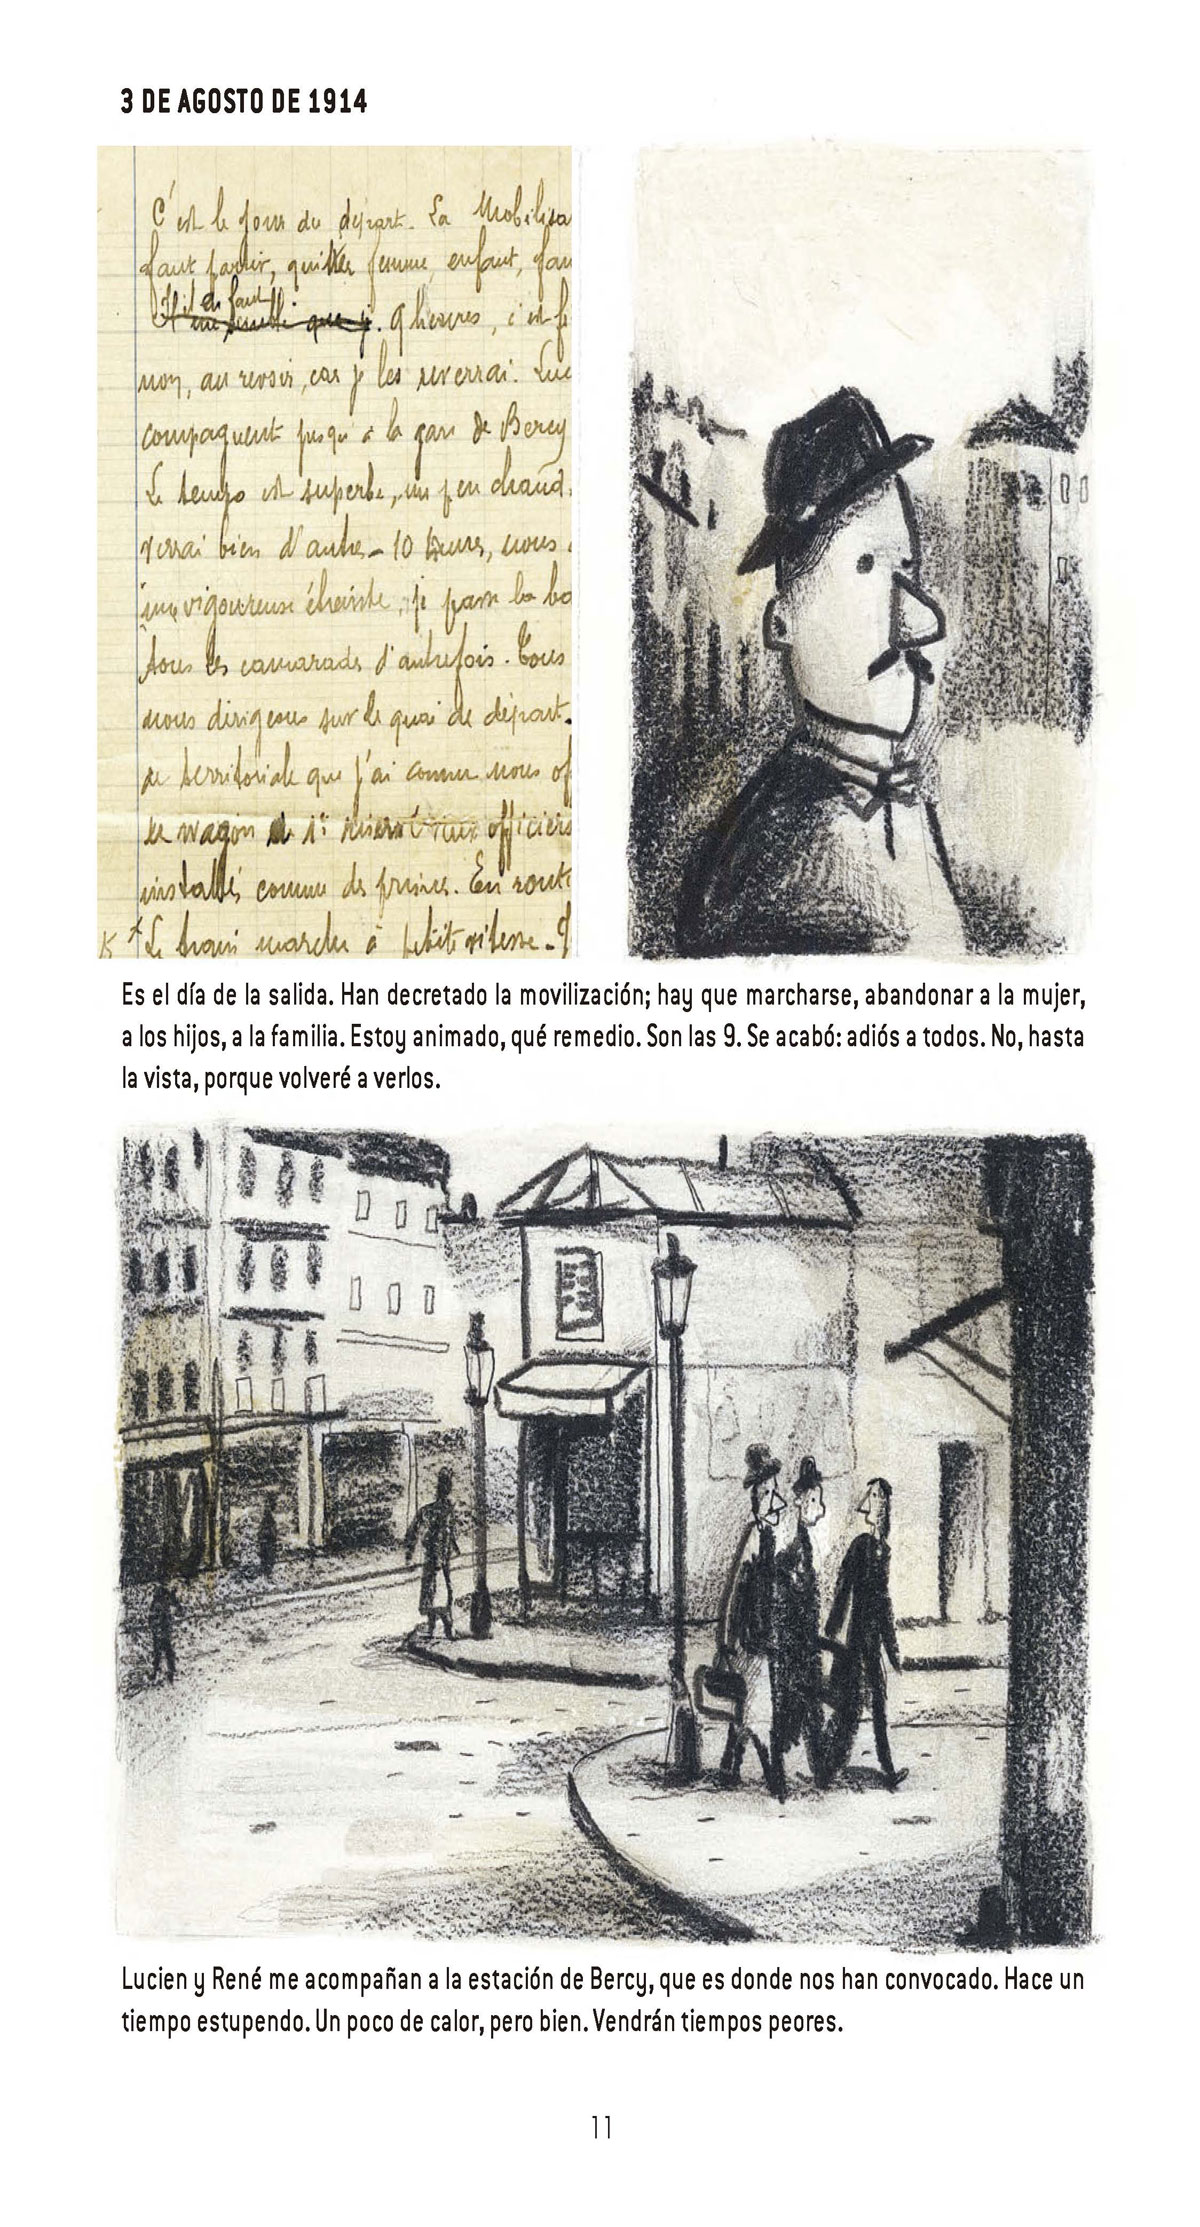 3 DE AGOSTO DE 1914
C'est le jour du départ. La Mobilisa
faut partir, quitter femme, enfant, fam
il en faut
9 heures, c'est f
non, au revoir, car je les reverrai. Luc
compagnent jusqu'à la gare de Bercy
Le temps est superbe, un peu chaud,
verrai bien d'autres – 10 heures, nous
une vigoureuse étreinte, je passe la ba
tous les camarades d'autrefois. Tous
nous dirigeons sur le quai de départ.
de territoriale que j'ai connu nous of
de wagon de 1re officiers
installés comme des princes. En route
Le train marche à petite vitesse –
Es el día de la salida. Han decretado la movilización; hay que marcharse, abandonar a la mujer,
a los hijos, a la familia. Estoy animado, qué remedio. Son las 9. Se acabó: adiós a todos. No, hasta
la vista, porque volveré a verlos.
Lucien y René me acompañan a la estación de Bercy, que es donde nos han convocado. Hace un
tiempo estupendo. Un poco de calor, pero bien. Vendrán tiempos peores.
11